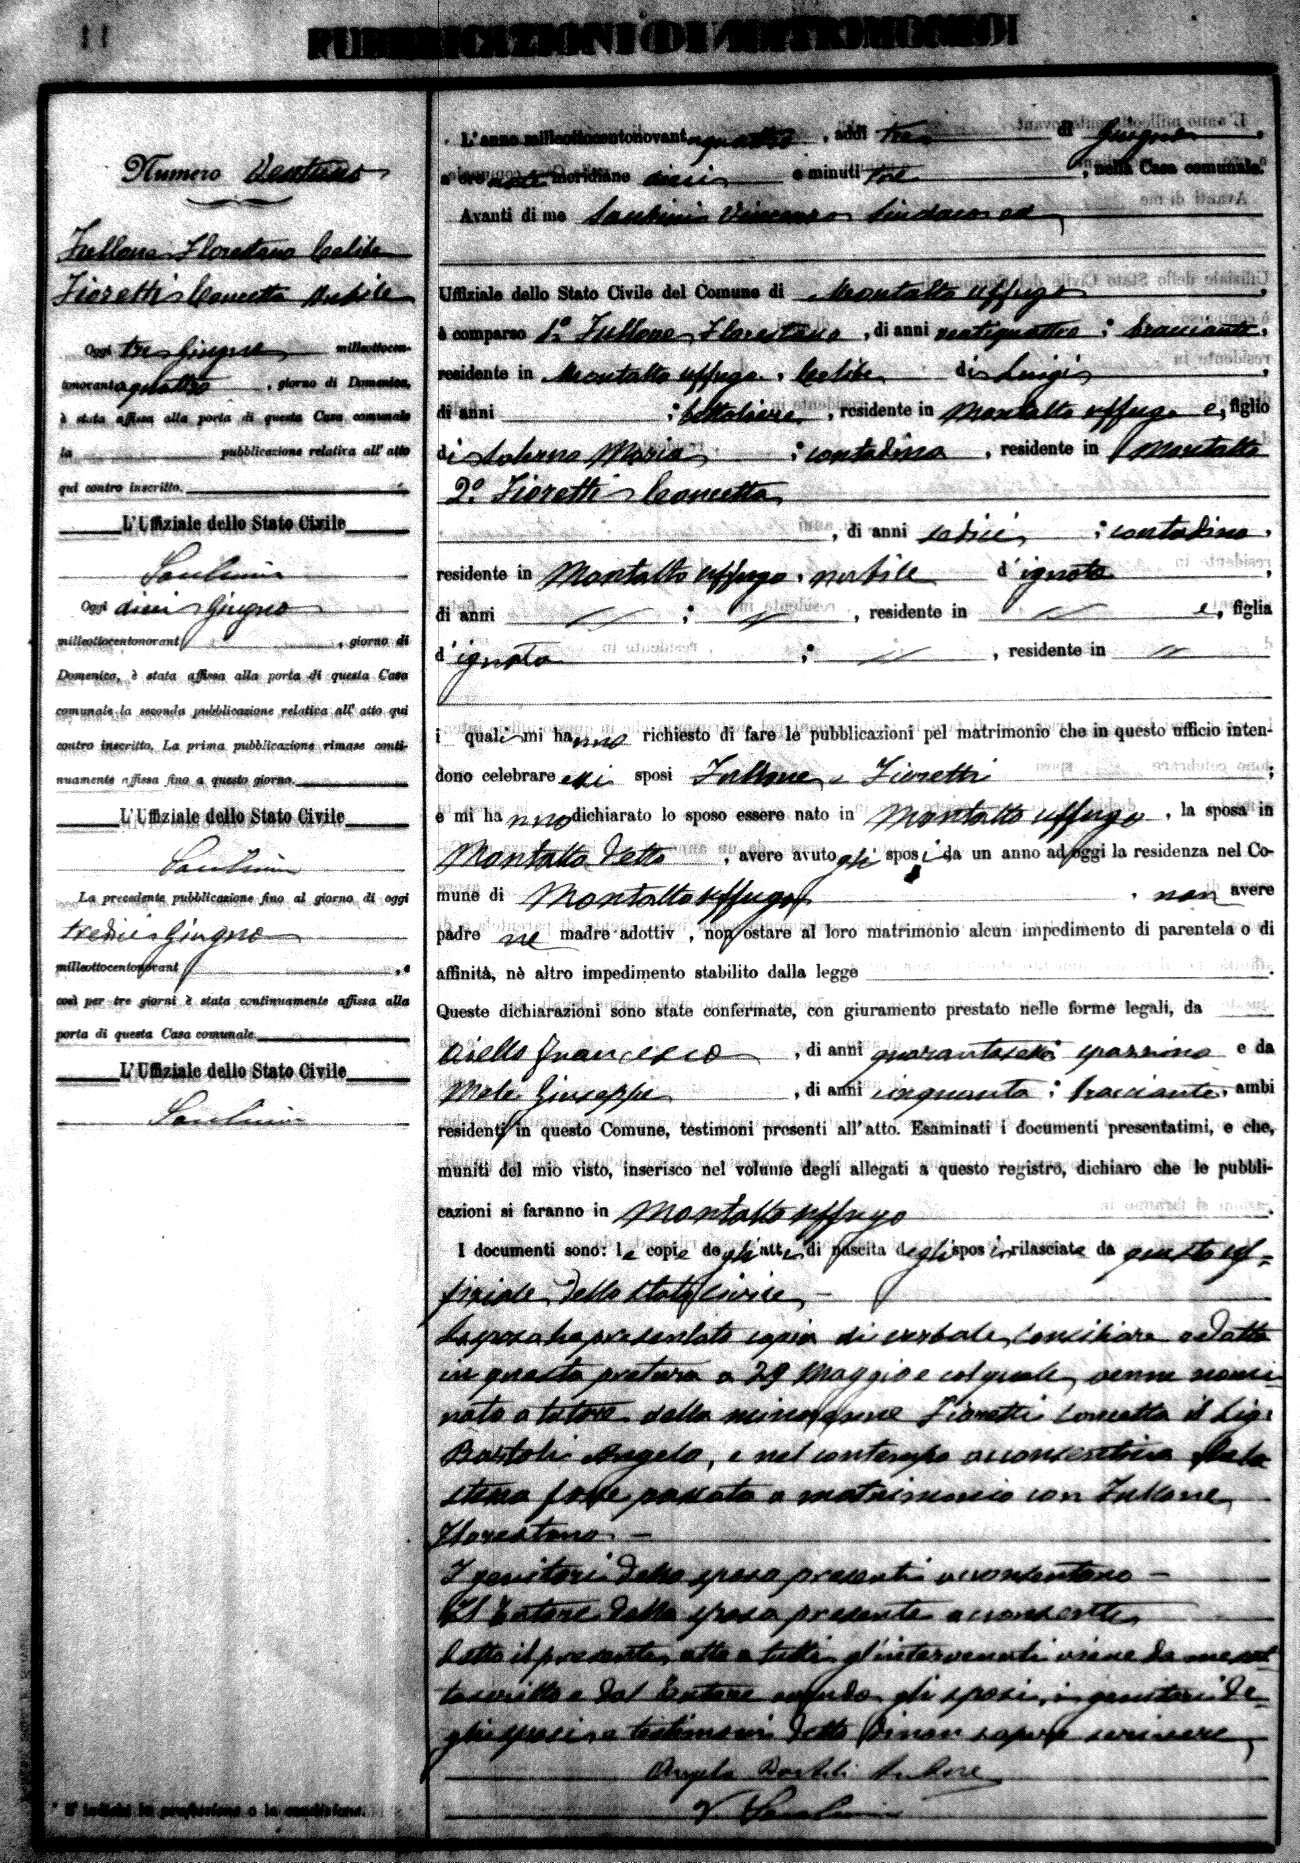 11
PUBBLICAZIONI DI MATRIMONIO
Numero Ventuno
Fullone Florestano Celibe
Fioretti Concetta Nubile
Oggi tre Giugno milleottocen-
tonovantaquattro, giorno di Domenica,
è stata affissa alla porta di questa Casa comunale
la pubblicazione relativa all' atto
qui contro inscritto.
L'Uffiziale dello Stato Civile
Oggi dieci Giugno
milleottocentonovant , giorno di
Domenica, è stata affissa alla porta di questa Casa
comunale la seconda pubblicazione relativa all' atto qui
contro inscritto. La prima pubblicazione rimase conti-
nuamente affissa fino a questo giorno.
L'Uffiziale dello Stato Civile
La precedente pubblicazione fino al giorno di oggi
tredici Giugno
milleottocentonovant , e
così per tre giorni è stata continuamente affissa alla
porta di questa Casa comunale.
L'Uffiziale dello Stato Civile
* S'indichi la professione o la condizione.
L'anno milleottocentonovantaquattro, addi tre di Giugno,
a ore ante meridiane dieci e minuti tre, nella Casa comunale
Avanti di me Vincenzo Sindaco ed
Uffiziale dello Stato Civile del Comune di Montalto Uffugo
è comparso 1º Fullone Florestano, di anni ventiquattro; bracciante,
residente in Montalto Uffugo, Celibe di Luigi,
di anni ; , residente in Montalto Uffugo e, figlio
di Salerno Maria ; contadina, residente in Montalto
2º Fioretti Concetta
, di anni sedici ; contadina,
residente in Montalto Uffugo, nubile d'ignoto,
di anni // ; // , residente in // e, figlia
d'ignota ; // , residente in //
i quali mi hanno richiesto di fare le pubblicazioni pel matrimonio che in questo ufficio inten-
dono celebrare essi sposi Fullone e Fioretti ;
e mi hanno dichiarato lo sposo essere nato in Montalto Uffugo, la sposa in
Montalto detto, avere avuto gli sposi da un anno ad oggi la residenza nel Co-
mune di Montalto Uffugo, non avere
padre nè madre adottiv , non ostare al loro matrimonio alcun impedimento di parentela o di
affinità, nè altro impedimento stabilito dalla legge .
Queste dichiarazioni sono state confermate, con giuramento prestato nelle forme legali, da
Aiello Francesco, di anni quarantasei; spazzino e da
Mele Giuseppe, di anni cinquanta; bracciante, ambi
residenti in questo Comune, testimoni presenti all'atto. Esaminati i documenti presentatimi, e che,
muniti del mio visto, inserisco nel volume degli allegati a questo registro, dichiaro che le pubbli-
cazioni si faranno in Montalto Uffugo.
I documenti sono: le copie degli atti di nascita degli sposi rilasciate da questo uf-
fiziale dello stato civile -
La sposa ha presentato copia di verbale consiliare adatto
in questa pretura a 29 Maggio e col quale venne nomi-
nato a tutore della minorenne Fioretti Concetta il Sig.
Bartoli Angelo, e nel contempo acconsentiva che la
stessa fosse passata a matrimonio con Fullone
Florestano -
I genitori dello sposo presenti acconsentono -
Il Tutore della sposa presente acconsente
Letto il presente atto a tutti gl'intervenuti viene da me sot-
toscritto e dal Tutore avendo gli sposi, i genitori de-
gli sposi e testimoni detto di non sapere scrivere
Angelo Bartoli tutore